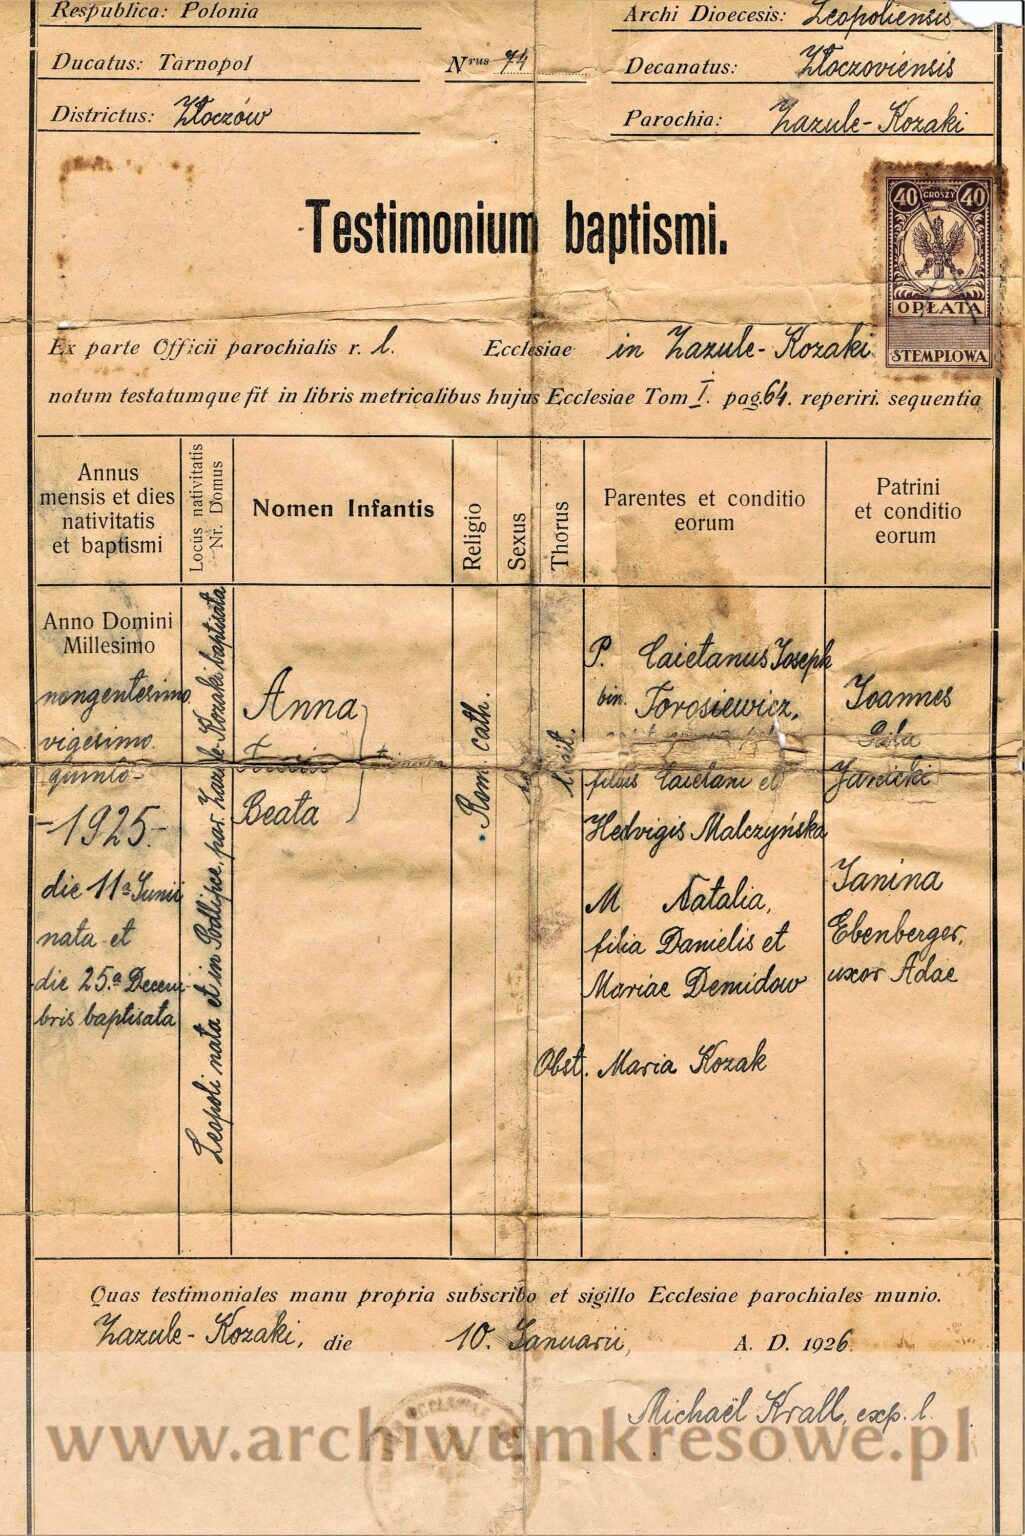 Respublica: Polonia
Archi Dioecesis: Leopoliensis
Ducatus: Tarnopol
Nrus 74
Decanatus: Złoczoviensis
Districtus: Złoczów
Parochia: Zazule-Kozaki
40 GROSZY 40
OPŁATA
STEMPLOWA
Testimonium baptismi.
Ex parte Officii parochialis r. l. Ecclesiae in Zazule-Kozaki
notum testatumque fit in libris metricalibus hujus Ecclesiae Tom I. pag. 64. reperiri. sequentia
Annus
mensis et dies
nativitatis
et baptismi
Locus nativitatis
Nr. Domus
Nomen Infantis
Religio
Sexus
Thorus
Parentes et conditio
eorum
Patrini
et conditio
eorum
Anno Domini
Millesimo
nongentesimo
vigesimo
quinto-
-1925-
die 11a Junii
nata et
die 25.a Decem
bris baptisata
Leopoli nata et in Podlipce, par. Zazule-Kozaki baptisata
Anna
Beata
Rom. cath.
P. Caietanus Joseph
bin. Torosiewicz,
filius Caietani et
Hedvigis Malczyńska
M Natalia,
filia Danielis et
Mariae Demidow
Obst. Maria Kozak
Joannes
Janicki
Janina
Ebenberger,
uxor Adae
Quas testimoniales manu propria subscribo et sigillo Ecclesiae parochiales munio.
Zazule-Kozaki, die 10. Januarii, A. D. 1926.
Michaël Krall, exp. l.
www.archiwumkresowe.pl